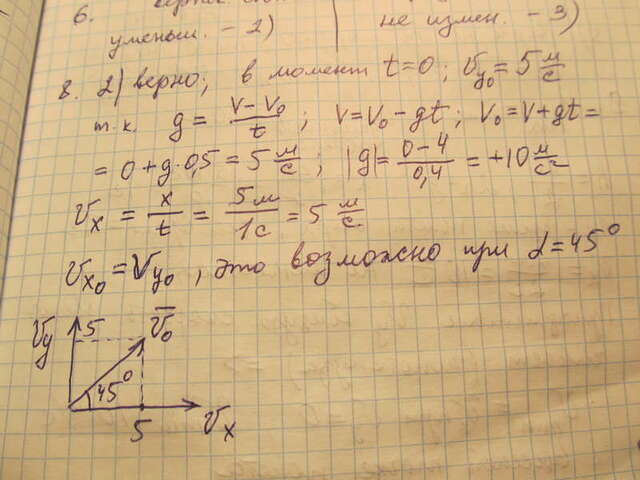 6.
уменьш. - 2) не измен. - 3)
8. 2) верно; в момент t=0; v_y₀ = 5 м/с
т.к. g = (v - v₀)/t; v = v₀ - gt; v₀ = v + gt =
= 0 + g·0,5 = 5 м/с; |g| = (0-4)/0,4 = +10 м/с²
v_x = x/t = 5м/1с = 5 м/с
v_x₀ = v_y₀, это возможно при α = 45°
v_y 5 v̄₀
45°
5 v_x